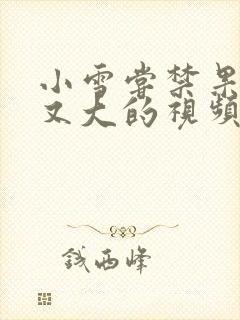 小雪嘗禁果
又大的視頻
錢西峰